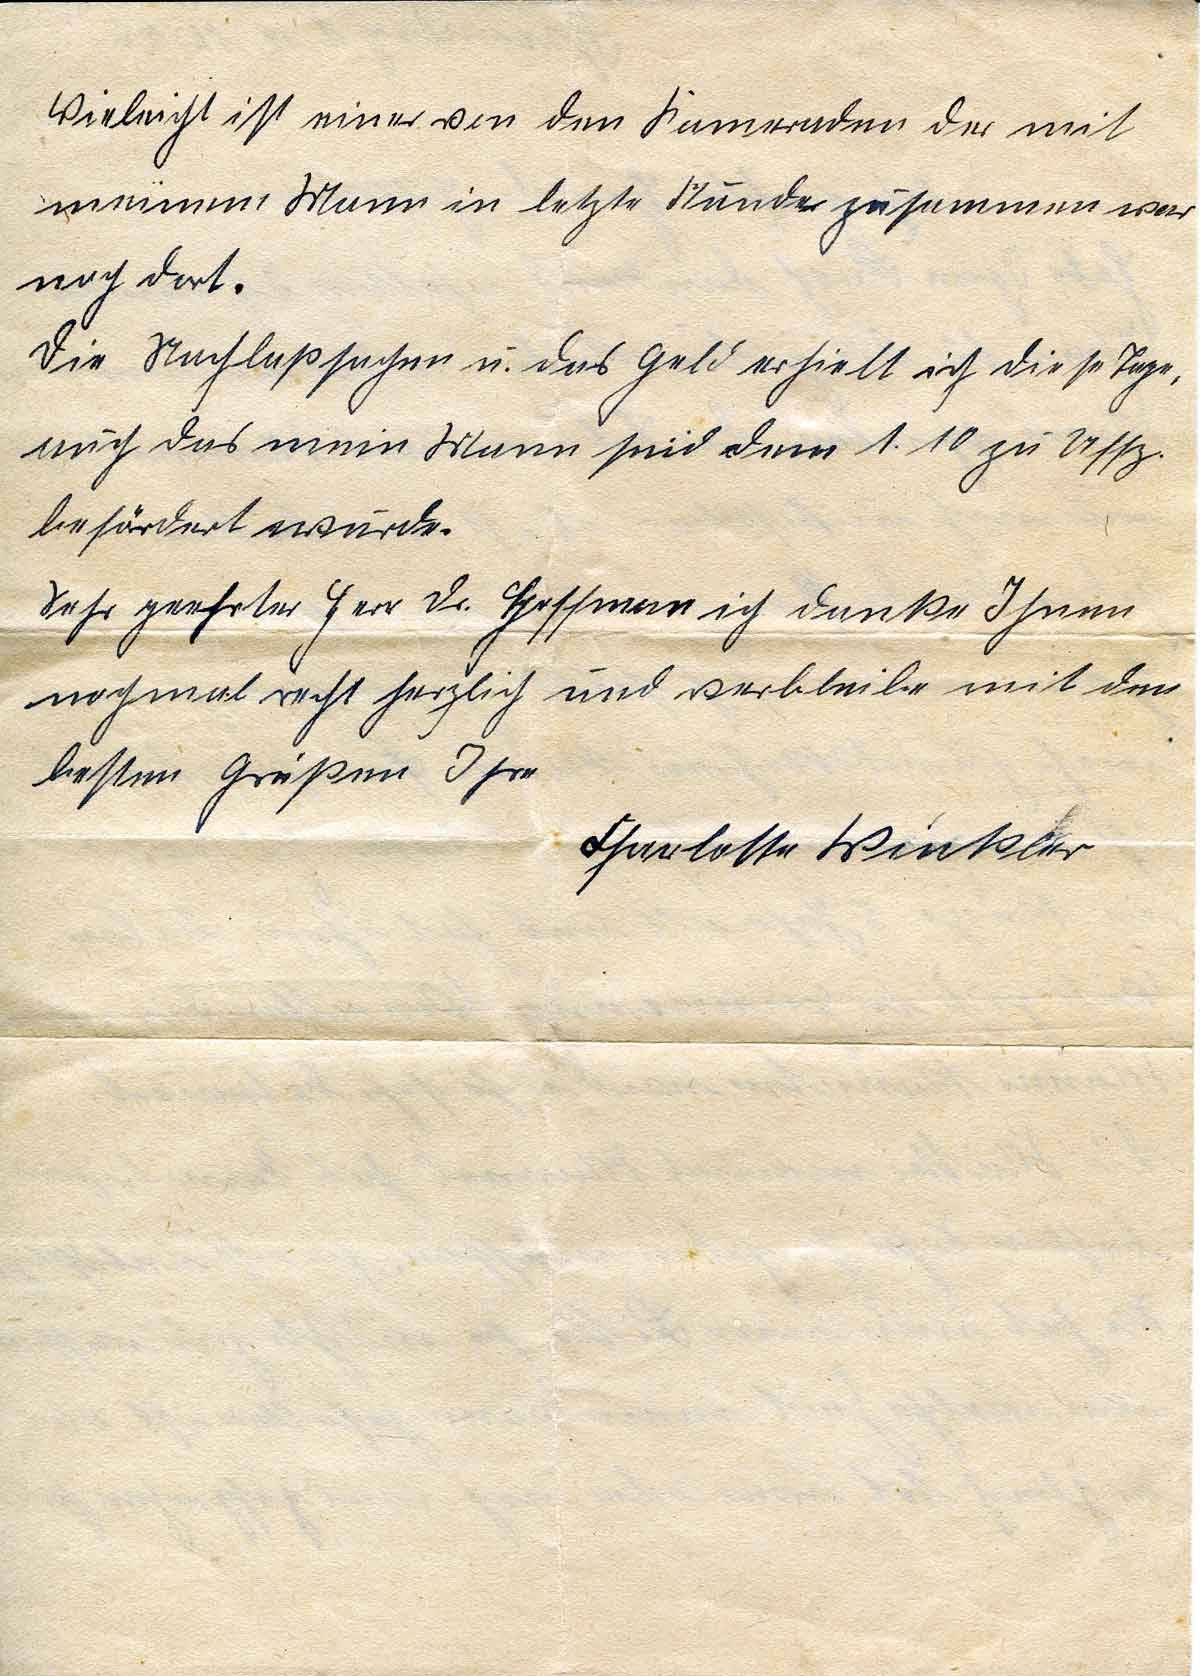 Vieleicht ist einer von den Kameraden der mit
meinem Mann in letzte Stunde zusammen war
noch dort.
Die Nachlaßsachen u. das Geld erhielt ich diese Tage,
auch das mein Mann seid dem 1. 10 zu Uffz.
befördert wurde.
Sehr geehrter Herr Dr. Hoffmann ich danke Ihnen
nochmal recht herzlich und verbleibe mit den
besten Grüßen Ihre
Charlotte Winkler